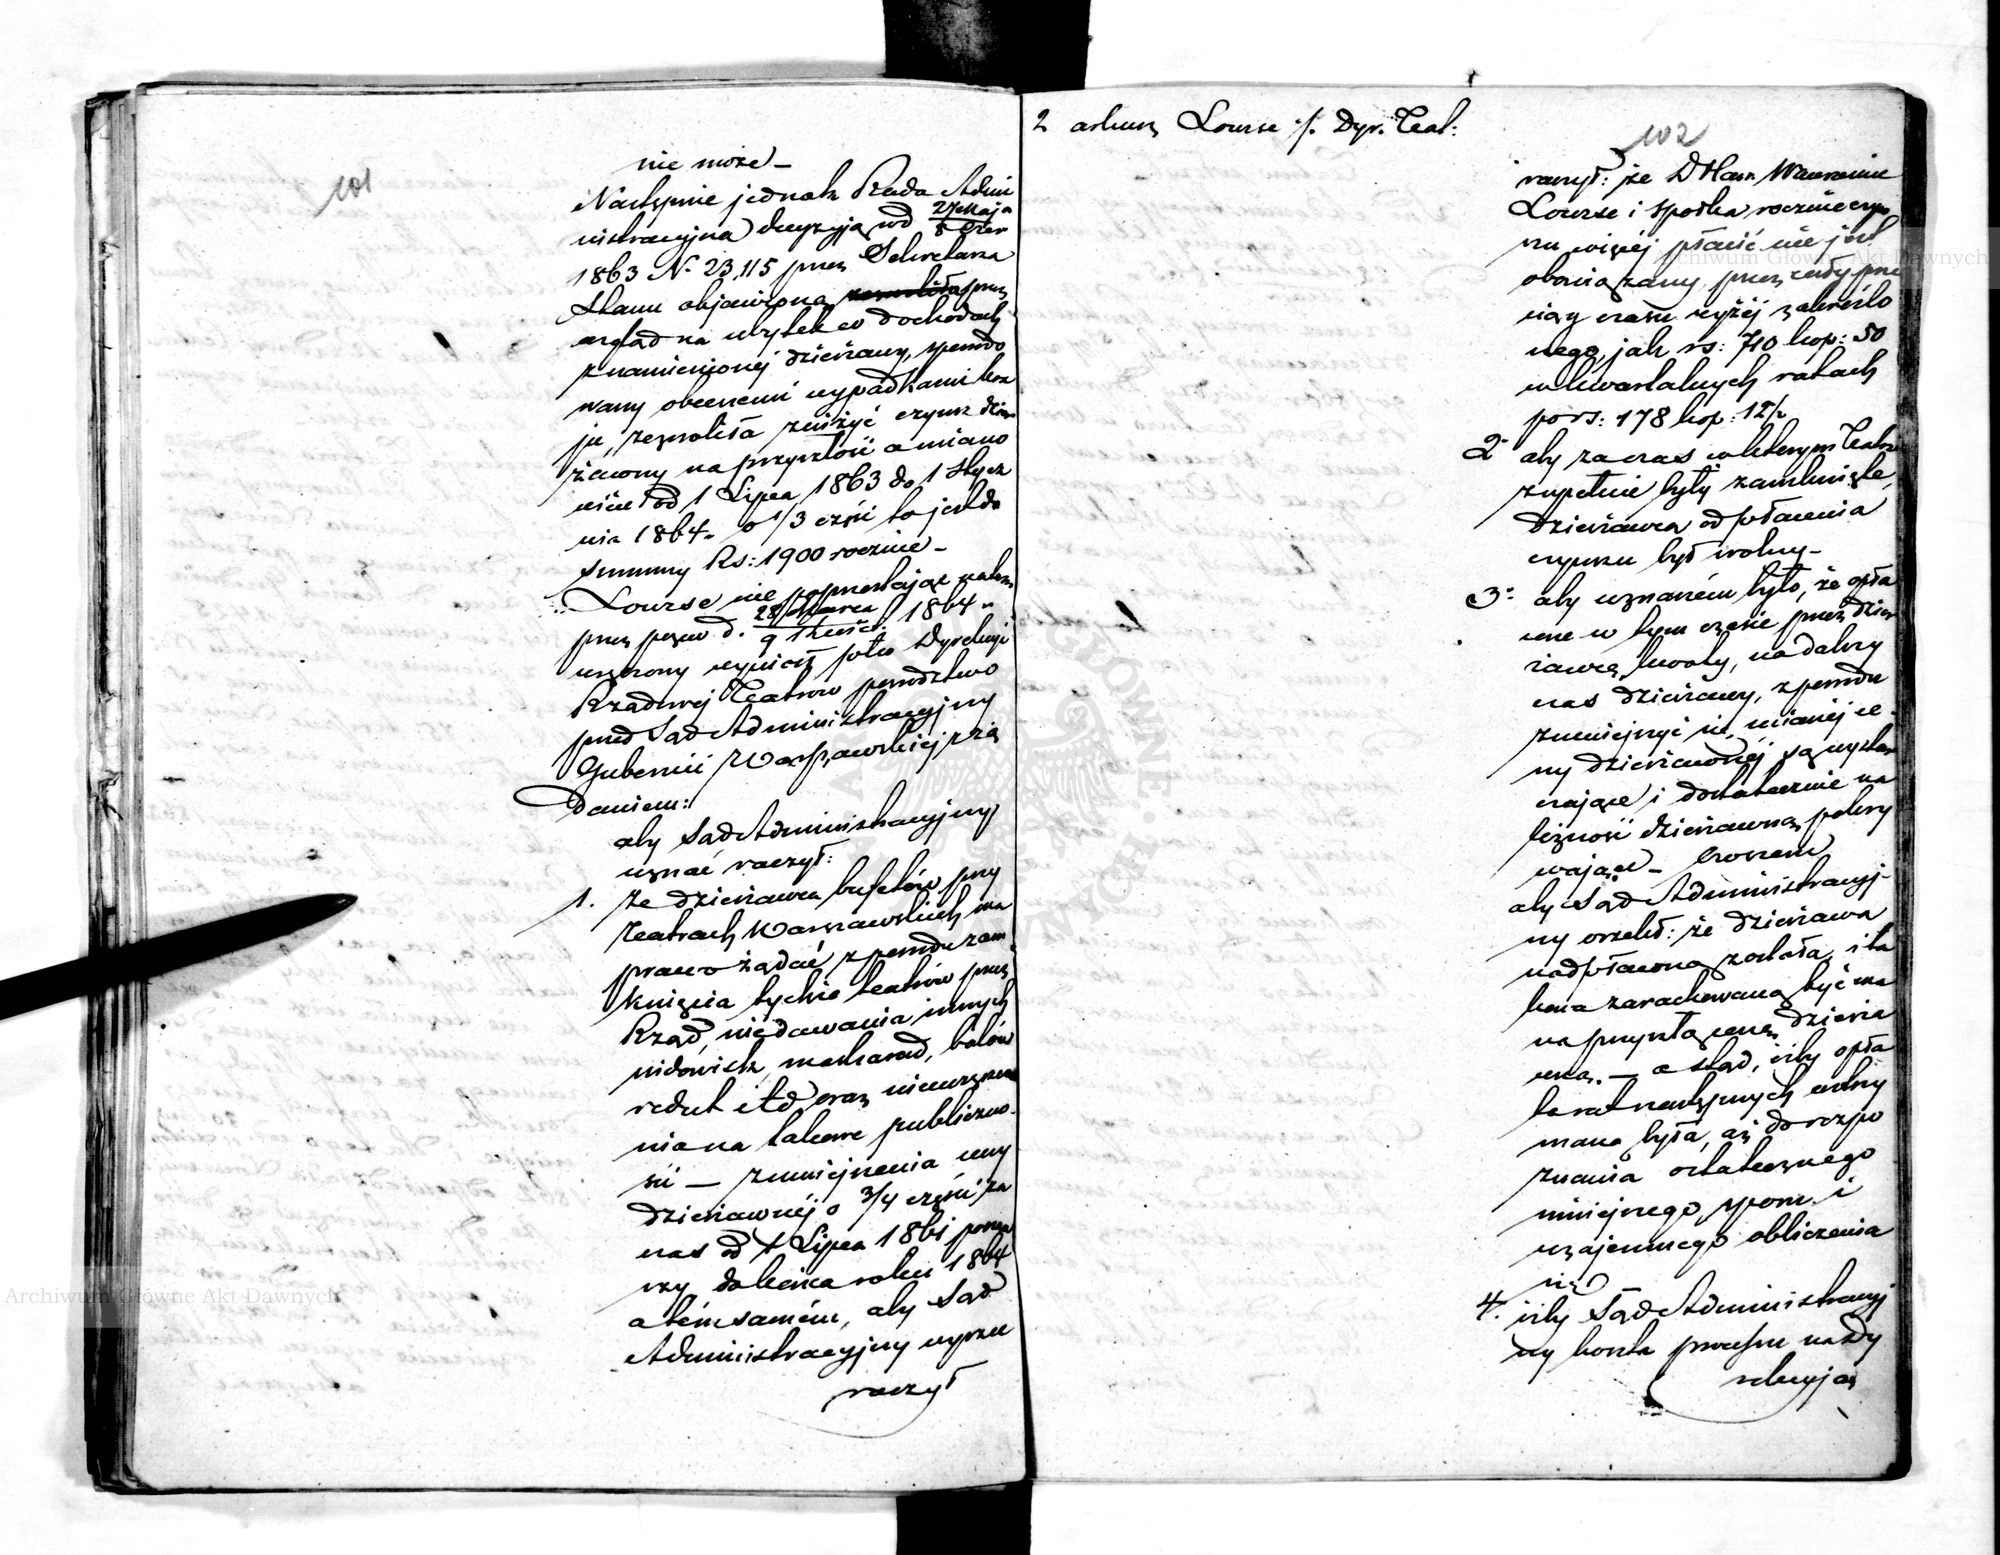 101
nie może –
Następnie jednak Rada Admi
nistracyjna decyzją od 27 Maja
8 Czer
1863 N. 23,115 przez Sekretarza
Stanu objawioną przez
wzgląd na ubytek w dochodach
znamienionej dzierżawy, spowodo
wany obecnemi wypadkami kra
ju, zezwoliła zniżyć czynsz dzier
żawny na przyszłość a miano
wicie od 1 Lipca 1863 do 1 Stycz
nia 1864. o 1/3 część to jest do
summy Rs: 1900 rocznie –
Lourse nie poprzestając na tem
przez pozew d. 28 Marca 1864
9 Kwiet.
wniesiony wyniósł p-tko Dyrekcyi
Rządowej Teatrów powództwo
przed Sąd Administracyjny
Gubernii Warszawskiej z żą
daniem:
aby Sąd Administracyjny
uznać raczył:
1. Że dzierżawca bufetów przy
Teatrach Warszawskich ma
prawo żądać z powodu zam
knięcia tychże teatrów przez
Rząd, niedawania innych
widowisk, maskarad, balów
redut itd oraz nieuczęszcza
nia na takowe publiczno
ści — zmniejszenia ceny
dzierżawnej o 3/4 części za
czas od 1 Lipca 1861 począ
wszy do końca roku 1864
a tém samém, aby Sąd
Administracyjny wyrzec
raczył
2 arkusz Lourse /. Dyr. Teat:
102
raczył: że Wawrzeniec
Lourse i Spółka rocznie czyn
szu więcéj płacić nie jest
obowiązany przez cały prze
ciąg czasu wyżéj zakreślo
nego, jak rs: 710 kop: 50
w kwartalnych ratach
po rs: 178 kop: 12½
2 aby za czas w którym Teatra
zupełnie były zamknięte,
dzierżawca od płacenia
czynszu był wolny –
3. aby uznaném było, że opła
cone w tym czasie przez dzier
żawcę kwoty, na dalszy
czas dzierżawy, z powodu
zmniejszyć się mianéj ce
ny dzierżawnéj są wystar
czające i dostatecznie na
leżność dzierżawną pokry
wające –
aby Sąd Administracyj
ny orzekł: że dzierżawa
nadpłaconą została i ta
kowa zarachowaną być ma
na przyszłą cenę dzierża
wną. — a stąd, iżby opła
ta rat następnych wstrzy
maną była, aż do rozpo
znania ostatecznego
niniejszego sporu i
wzajemnego obliczenia
się
4. iżby Sąd Administracyj
ny koszta processu na Dy
rekcyją
Archiwum Główne Akt Dawnych
Archiwum Główne Akt Dawnych